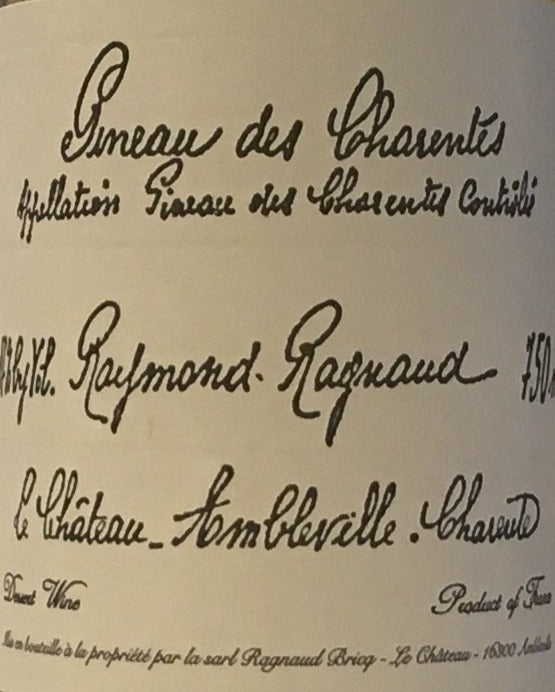 Pineau des Charentes
Appellation Pineau des Charentes Contrôlée
by Vol. Raymond Ragnaud 750
le Château - Ambleville . Charente
Desert Wine
Product of France
Mis en bouteille à la propriété par la sarl Ragnaud Bricq - Le Château - 16300